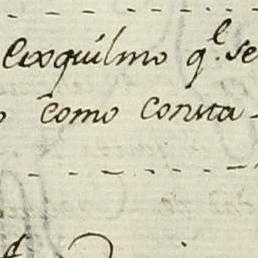 Eexquilmo q.^e se
como consta